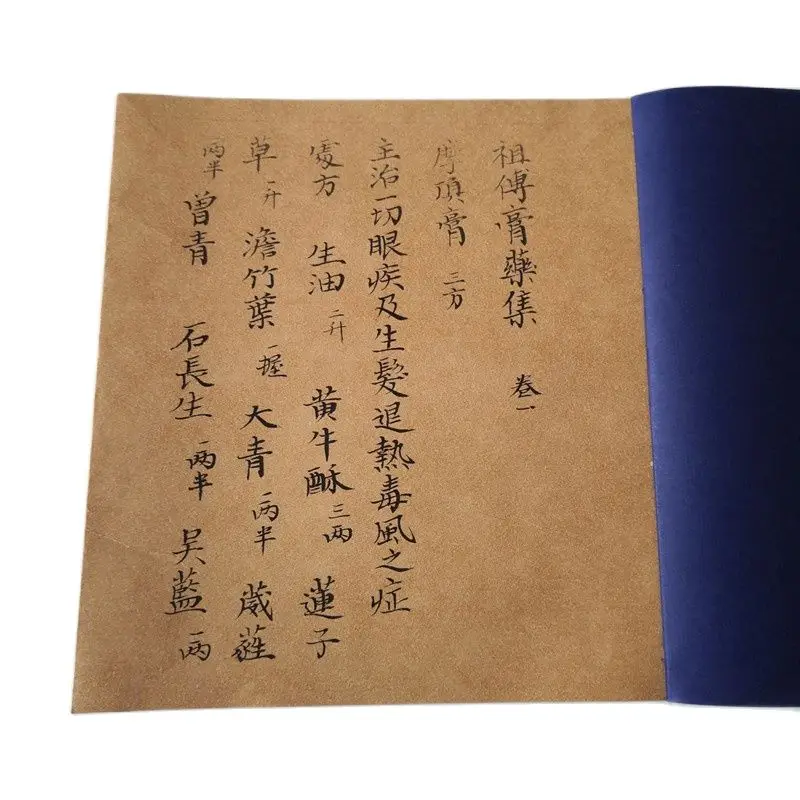 祖傅膏藥集 卷一
摩頂膏 三方
主治一切眼疾及生髮退熱毒風之症
處方 生油 二升 黃牛酥 三兩 蓮子
草 一升 澹竹葉 一握 大青 一兩半 葳蕤
兩半 曾青 石長生 一兩半 吴藍 一兩